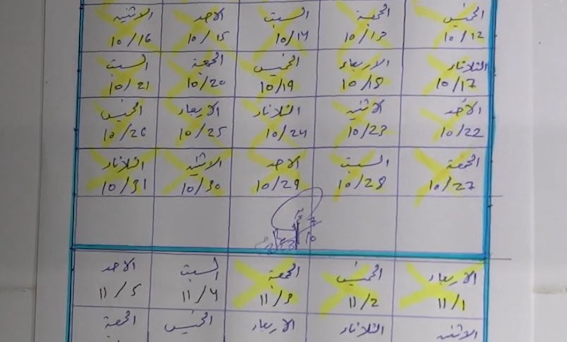 الخميس الجمعة السبت الاحد الاثنين
10/12 10/13 10/14 10/15 10/16
الثلاثاء الاربعاء الخميس الجمعة السبت
10/17 10/18 10/19 10/20 10/21
الأحد الاثنين الثلاثاء الاربعاء الخميس
10/22 10/23 10/24 10/25 10/26
الجمعة السبت الاحد الاثنين الثلاثاء
10/27 10/28 10/29 10/30 10/31
الاربعاء الخميس الجمعة السبت الاحد
11/1 11/2 11/3 11/4 11/5
الاثنين الثلاثاء الاربعاء الخميس الجمعة